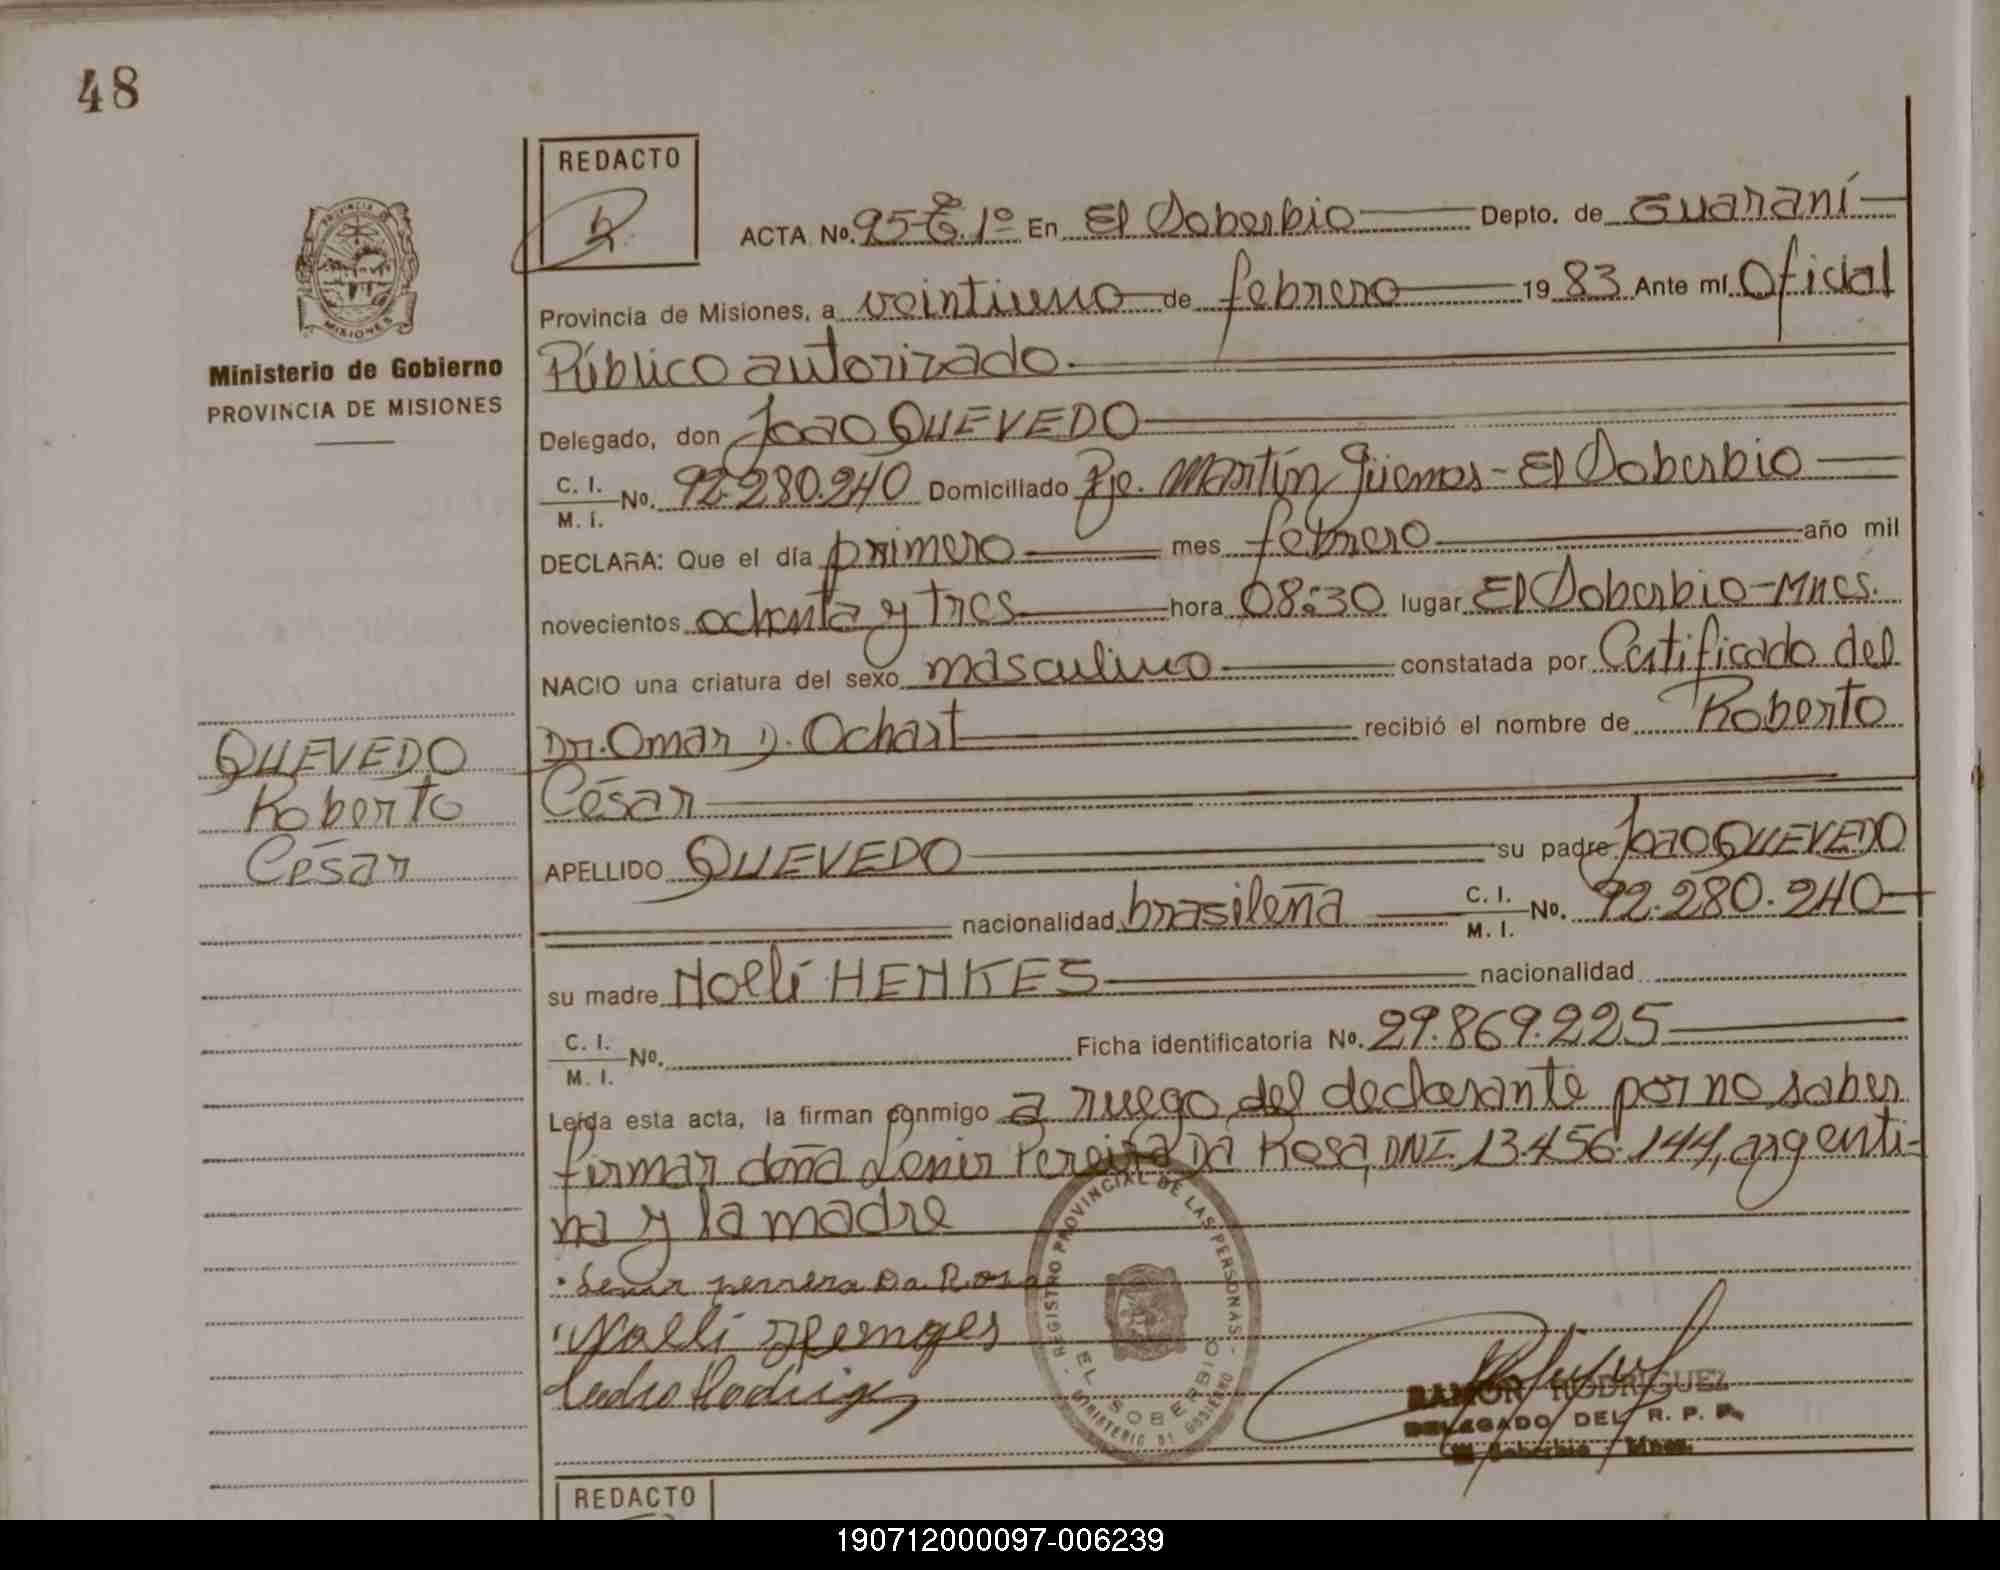 48
REDACTO
ACTA No. 95-T. 1º En El Soberbio Depto. de Guaraní
Provincia de Misiones, a veintiuno de febrero 1983 Ante mí Oficial
Público autorizado.
Ministerio de Gobierno
PROVINCIA DE MISIONES
Delegado, don Joao QUEVEDO
C. I. / M. I. No. 92.280.240 Domiciliado Pje. Martín Güemes - El Soberbio
DECLARA: Que el día primero mes febrero año mil
novecientos ochenta y tres hora 08:30 lugar El Soberbio - Mnes.
NACIO una criatura del sexo masculino constatada por Certificado del
Dr. Omar D. Ochart recibió el nombre de Roberto
César
QUEVEDO
Roberto
César
APELLIDO QUEVEDO su padre Joao QUEVEDO
nacionalidad brasileña C. I. / M. I. No. 92.280.240
su madre Nolli HENKES nacionalidad
C. I. / M. I. No. Ficha identificatoria No. 29.869.225
Leída esta acta, la firman conmigo a ruego del declarante por no saber
firmar doña Lenir Pereira Da Rosa, DNI. 13.456.144, argenti-
na y la madre
Lenir perreira Da Rosa
Nolli Henges
REGISTRO PROVINCIAL DE LAS PERSONAS
EL SOBERBIO
MINISTERIO DE GOBIERNO
RAMON RODRIGUEZ
DELEGADO DEL R. P. P.
El Soberbio - Mnes.
REDACTO
190712000097-006239